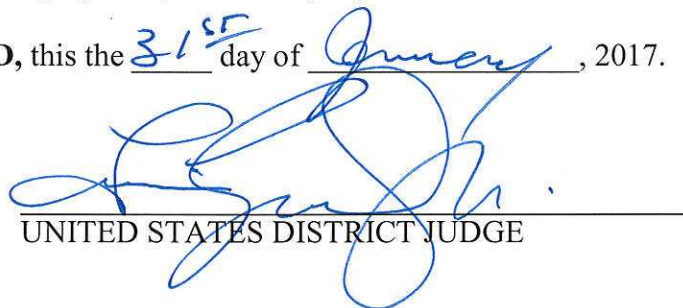 O, this the 31st day of January, 2017.
UNITED STATES DISTRICT JUDGE